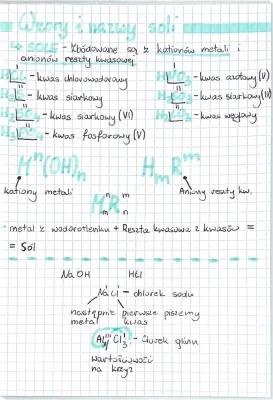 Wzory i nazwy soli
↳ SOLE - Zbudowane są z kationów metali i
anionów reszty kwasowej
HCl - kwas chlorowodorowy
H₂S - kwas siarkowy
H₂SO₄ - kwas siarkowy (VI)
H₃PO₄ - kwas fosforowy (V)
HNO₃ - kwas azotowy (V)
H₂SO₃ - kwas siarkowy (IV)
H₂CO₃ - kwas węglowy
Mⁿ(OH)ₙ
HₘRᵐ
kationy metali
Aniony reszty kw.
MₘⁿRₙᵐ
metal z wodorotlenku + Reszta kwasowa z kwasów =
= Sól
NaOH HCl
NaCl - chlorek sodu
następnie pierwsze piszemy
metal kwas
Al Cl₃ - glinu
wartościowość
na krzyż